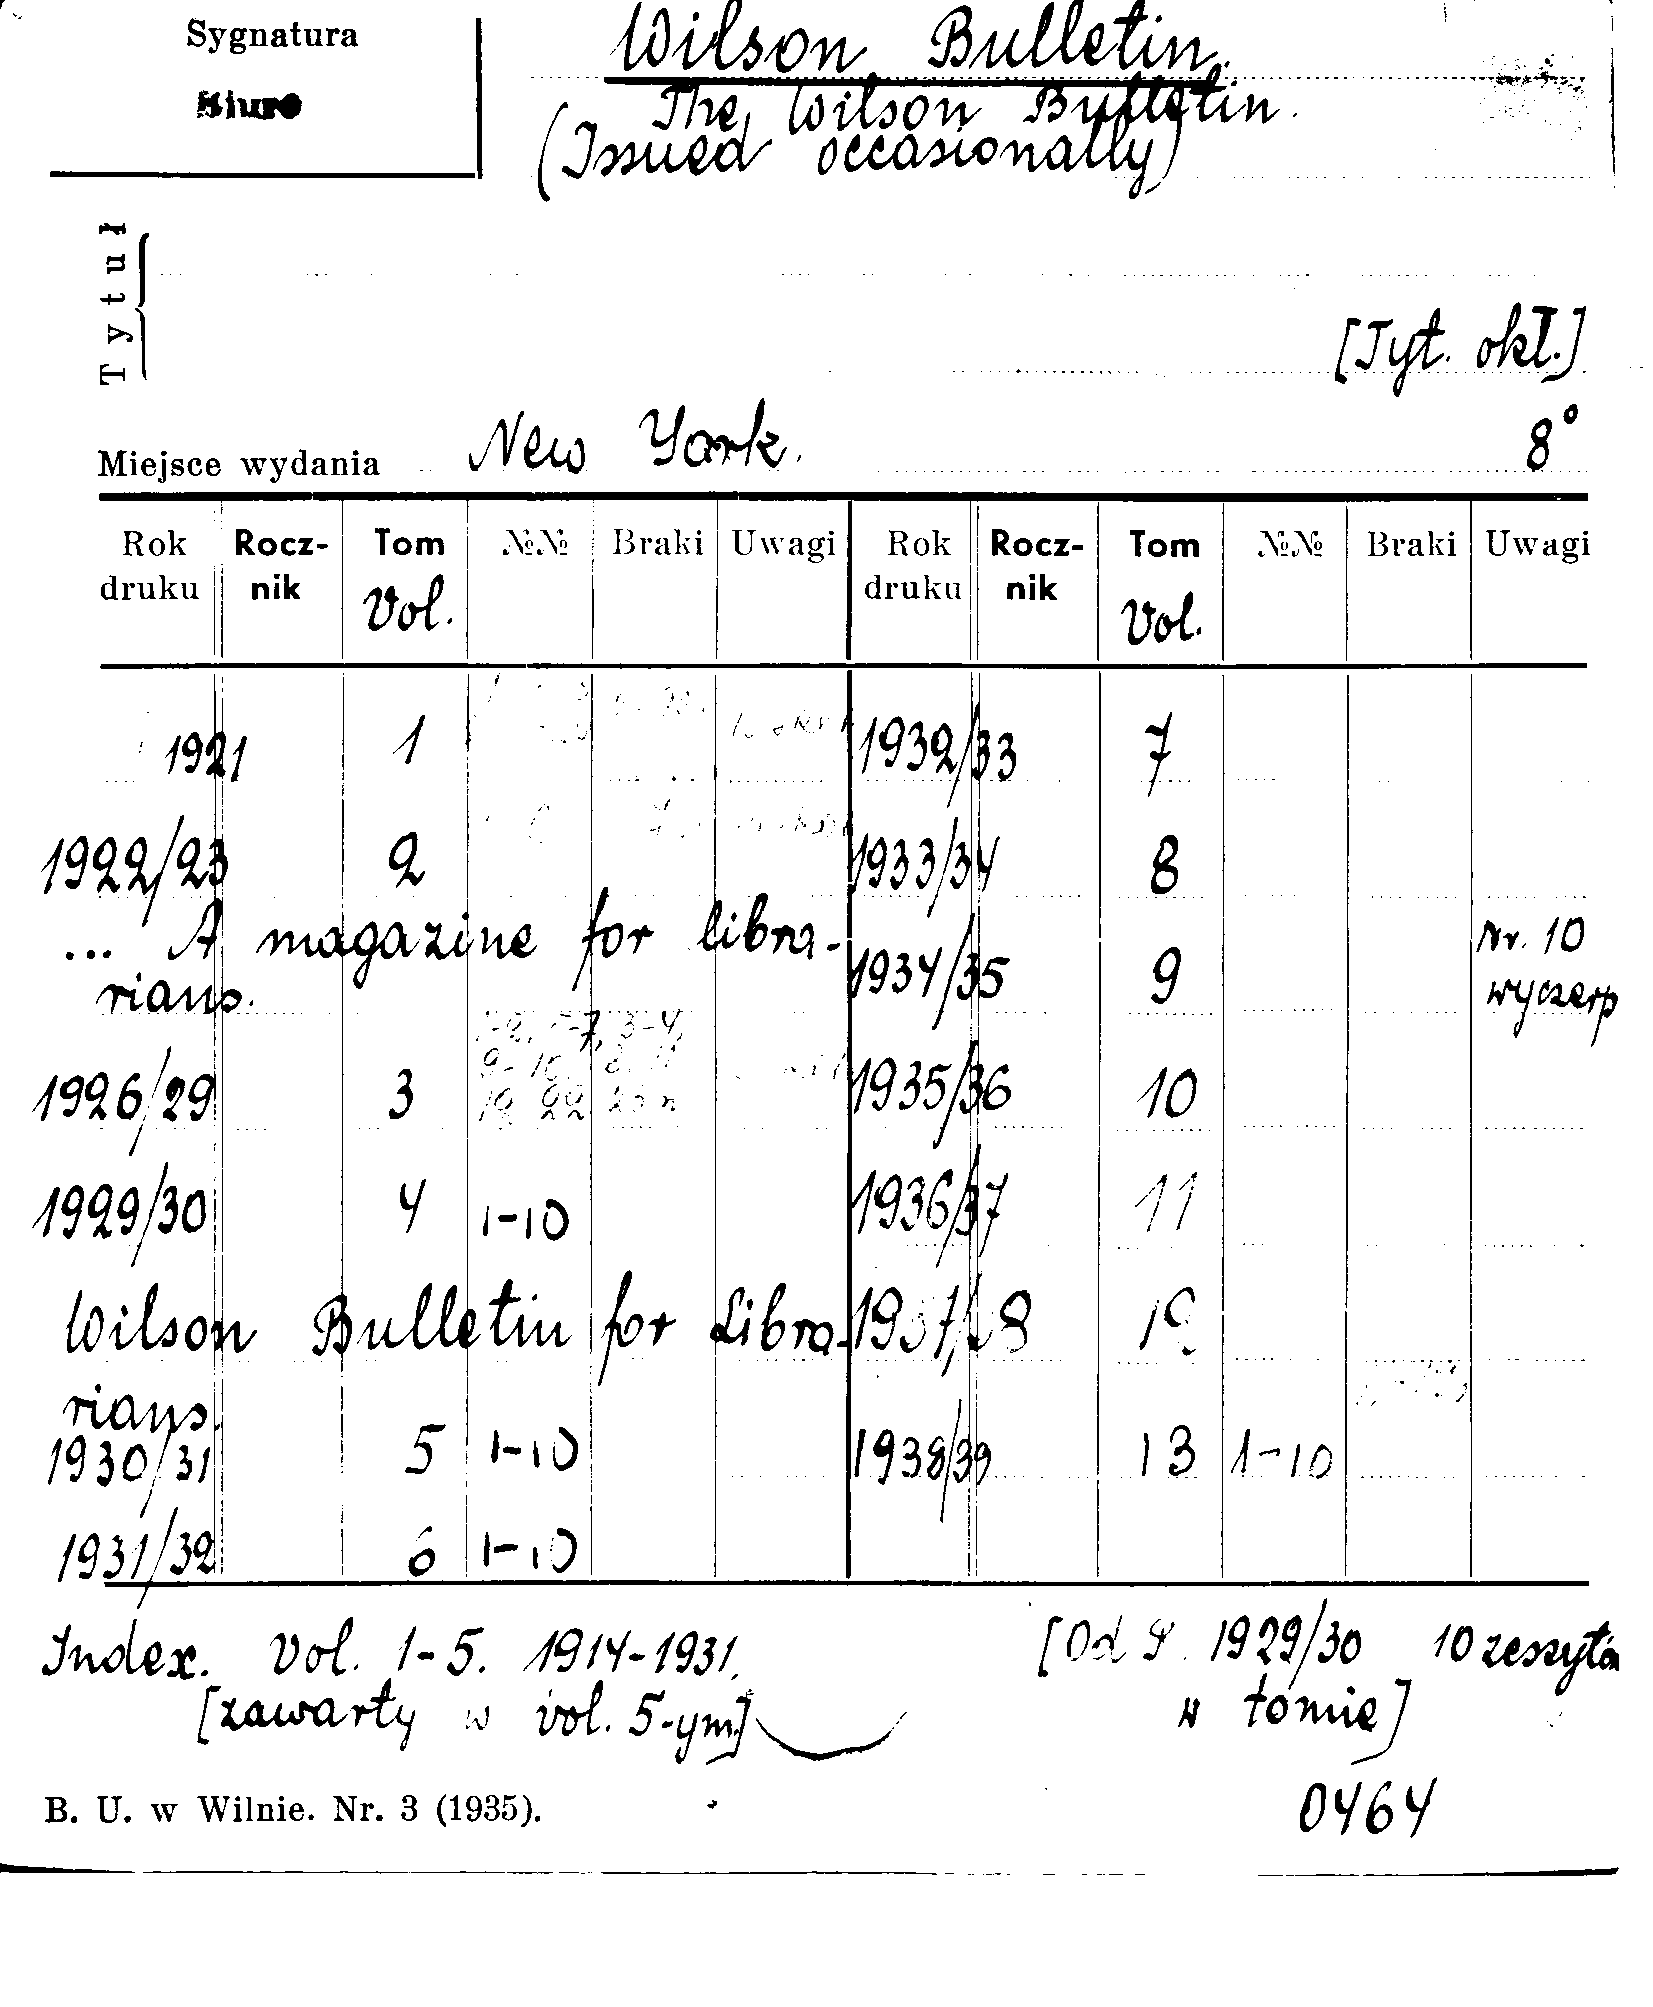 Sygnatura
Biuro
Wilson Bulletin.
The Wilson Bulletin.
(Issued occasionally)
Tytuł
[Tyt. okł.]
Miejsce wydania New York. 8°
Rok druku Rocznik Tom №№ Braki Uwagi Rok druku Rocznik Tom №№ Braki Uwagi
Vol. Vol.
1921 1
1922/23 2
... A magazine for libra-
rians.
1926/29 3
1929/30 4 1-10
Wilson Bulletin for Libra-
rians.
1930/31 5 1-10
1931/32 6 1-10
1932/33 7
1933/34 8
1934/35 9 Nr. 10
wyczerp
1935/36 10
1936/37 11
1938/39 13 1-10
Index. Vol. 1-5. 1914-1931.
[zawarty w vol. 5-ym]
[Od 1929/30 10 zeszytów
w tomie]
B. U. w Wilnie. Nr. 3 (1935).
0464